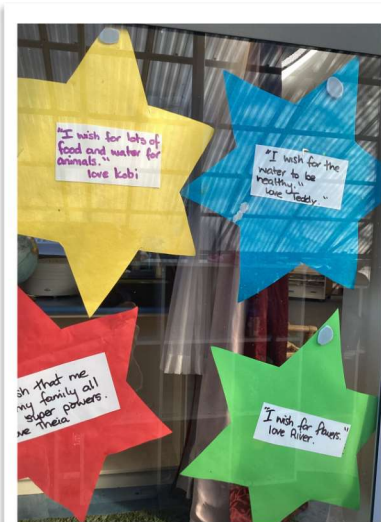 "I wish for lots of
food and water for
animals."
love Kobi
"I wish for the
water to be
healthy,"
love Teddy."
sh that me
my family all
super powers.
ve Theia
"I wish for flowers."
love River.